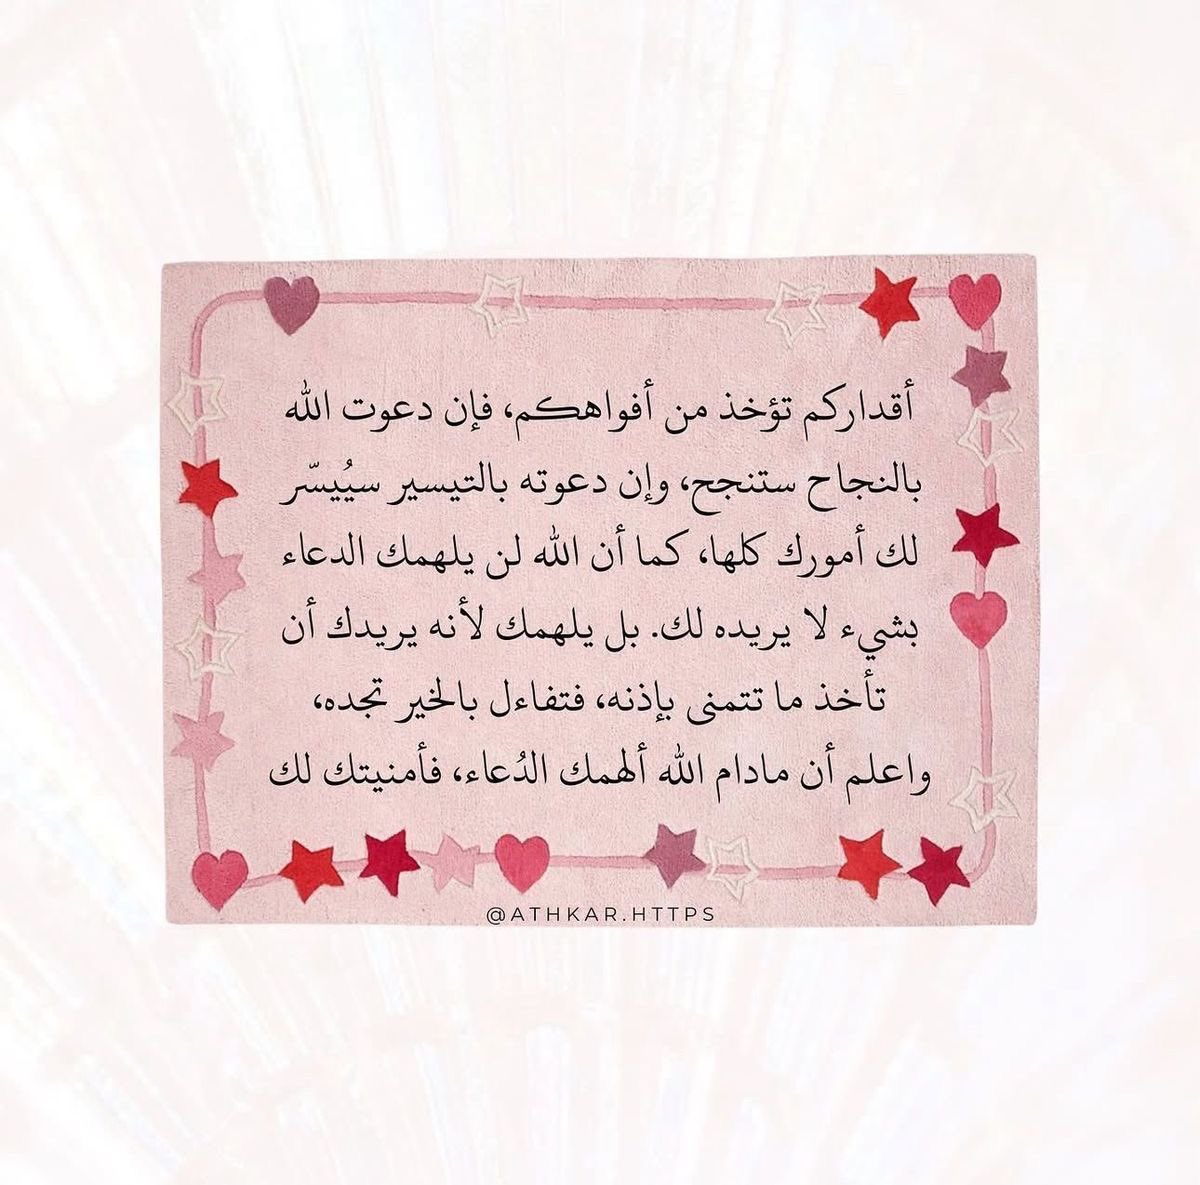 أقداركم تؤخذ من أفواهكم، فإن دعوت الله
بالنجاح ستنجح، وإن دعوته بالتيسير سيُيسّر
لك أمورك كلها، كما أن الله لن يلهمك الدعاء
بشيء لا يريده لك. بل يلهمك لأنه يريدك أن
تأخذ ما تتمنى بإذنه، فتفاءل بالخير تجده،
واعلم أن مادام الله ألهمك الدُعاء، فأمنيتك لك
@ATHKAR.HTTPS